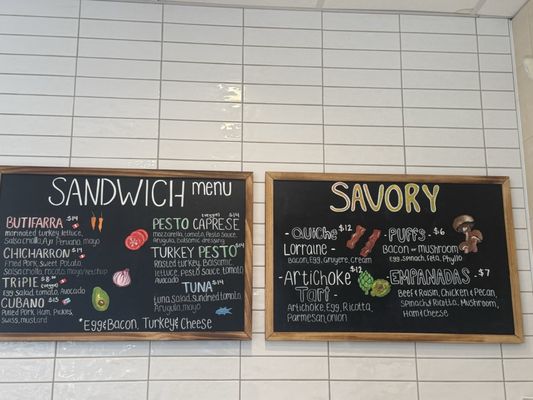 SANDWICH menu
BUTIFARRA $14
marinated turkey, lettuce,
Salsa criolla, Aji Peruano, mayo
CHICHARRON $14
Fried Pork, sweet Potato,
Salsa criolla, mayo/ketchup
TRIPLE $8
Egg salad, tomato, Avocado
CUBANO $15
Pulled Pork, Ham, Pickles,
swiss, mustard
PESTO CAPRESE $14
mozzarella, tomato, Pesto sauce,
Arugula, balsamic dressing
TURKEY PESTO $14
Roasted turkey, Balsamic,
lettuce, Pesto sauce, tomato,
Avocado
TUNA $14
Tuna Salad, Sundried tomato,
Arugula, mayo
*Egg & Bacon, Turkey & Cheese
SAVORY
-Quiche $12
Lorraine
Bacon, Egg, Gruyere, Cream
-Artichoke $12
Tart-
Artichoke, Egg, Ricotta
Parmesan, onion
-PUFFS- $6
Bacon or mushroom
Egg, Spinach, Feta, Phyllo
-EMPANADAS- $7
Beef & Raisin, Chicken & Pecan
Spinach & Ricotta, Mushroom,
Ham & Cheese